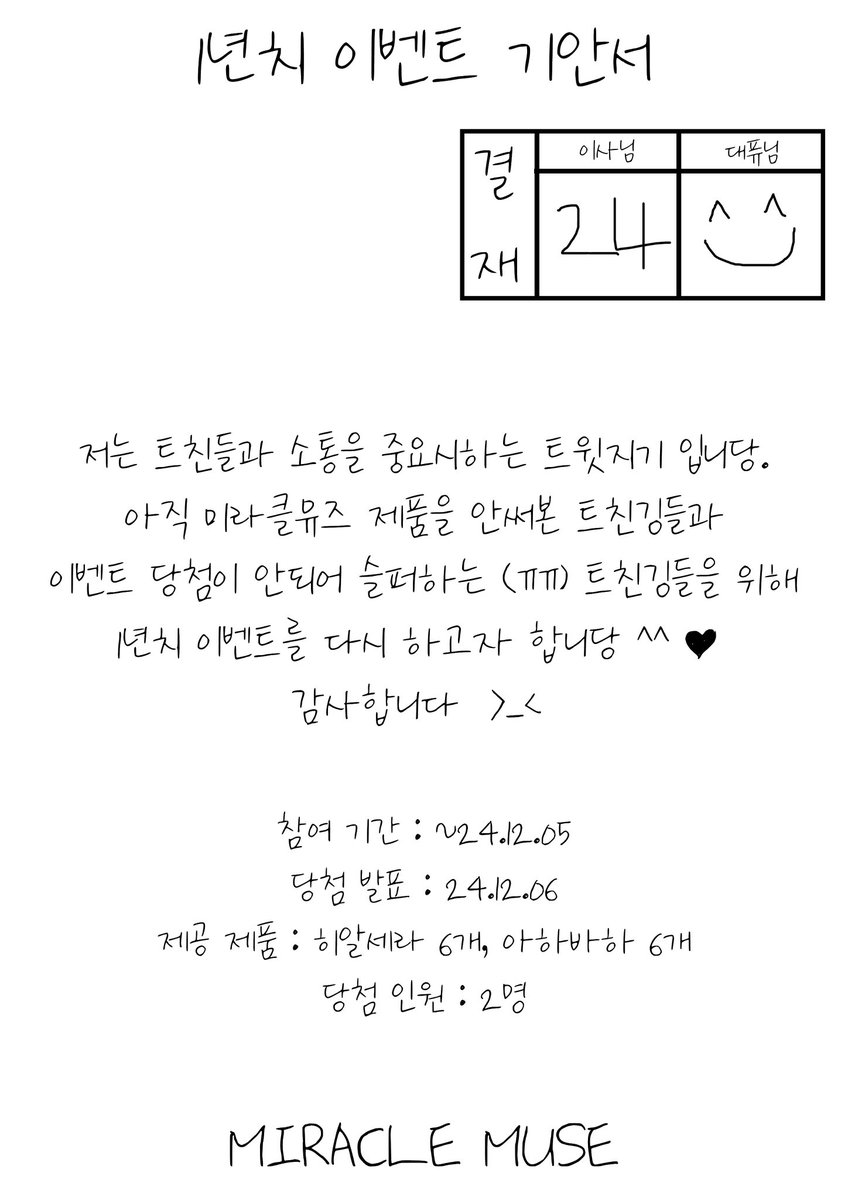 1년치 이벤트 기안서
결재
이사님
대퓨님
24
^ ^
저는 트친들과 소통을 중요시하는 트윗지기 입니당.
아직 미라클뮤즈 제품을 안써본 트친깅들과
이벤트 당첨이 안되어 슬퍼하는 (ㅠㅠ) 트친깅들을 위해
1년치 이벤트를 다시 하고자 합니당 ^^ ♥
감사합니다 >_<
참여 기간 : ~24.12.05
당첨 발표 : 24.12.06
제공 제품 : 히알세라 6개, 아하바하 6개
당첨 인원 : 2명
MIRACLE MUSE